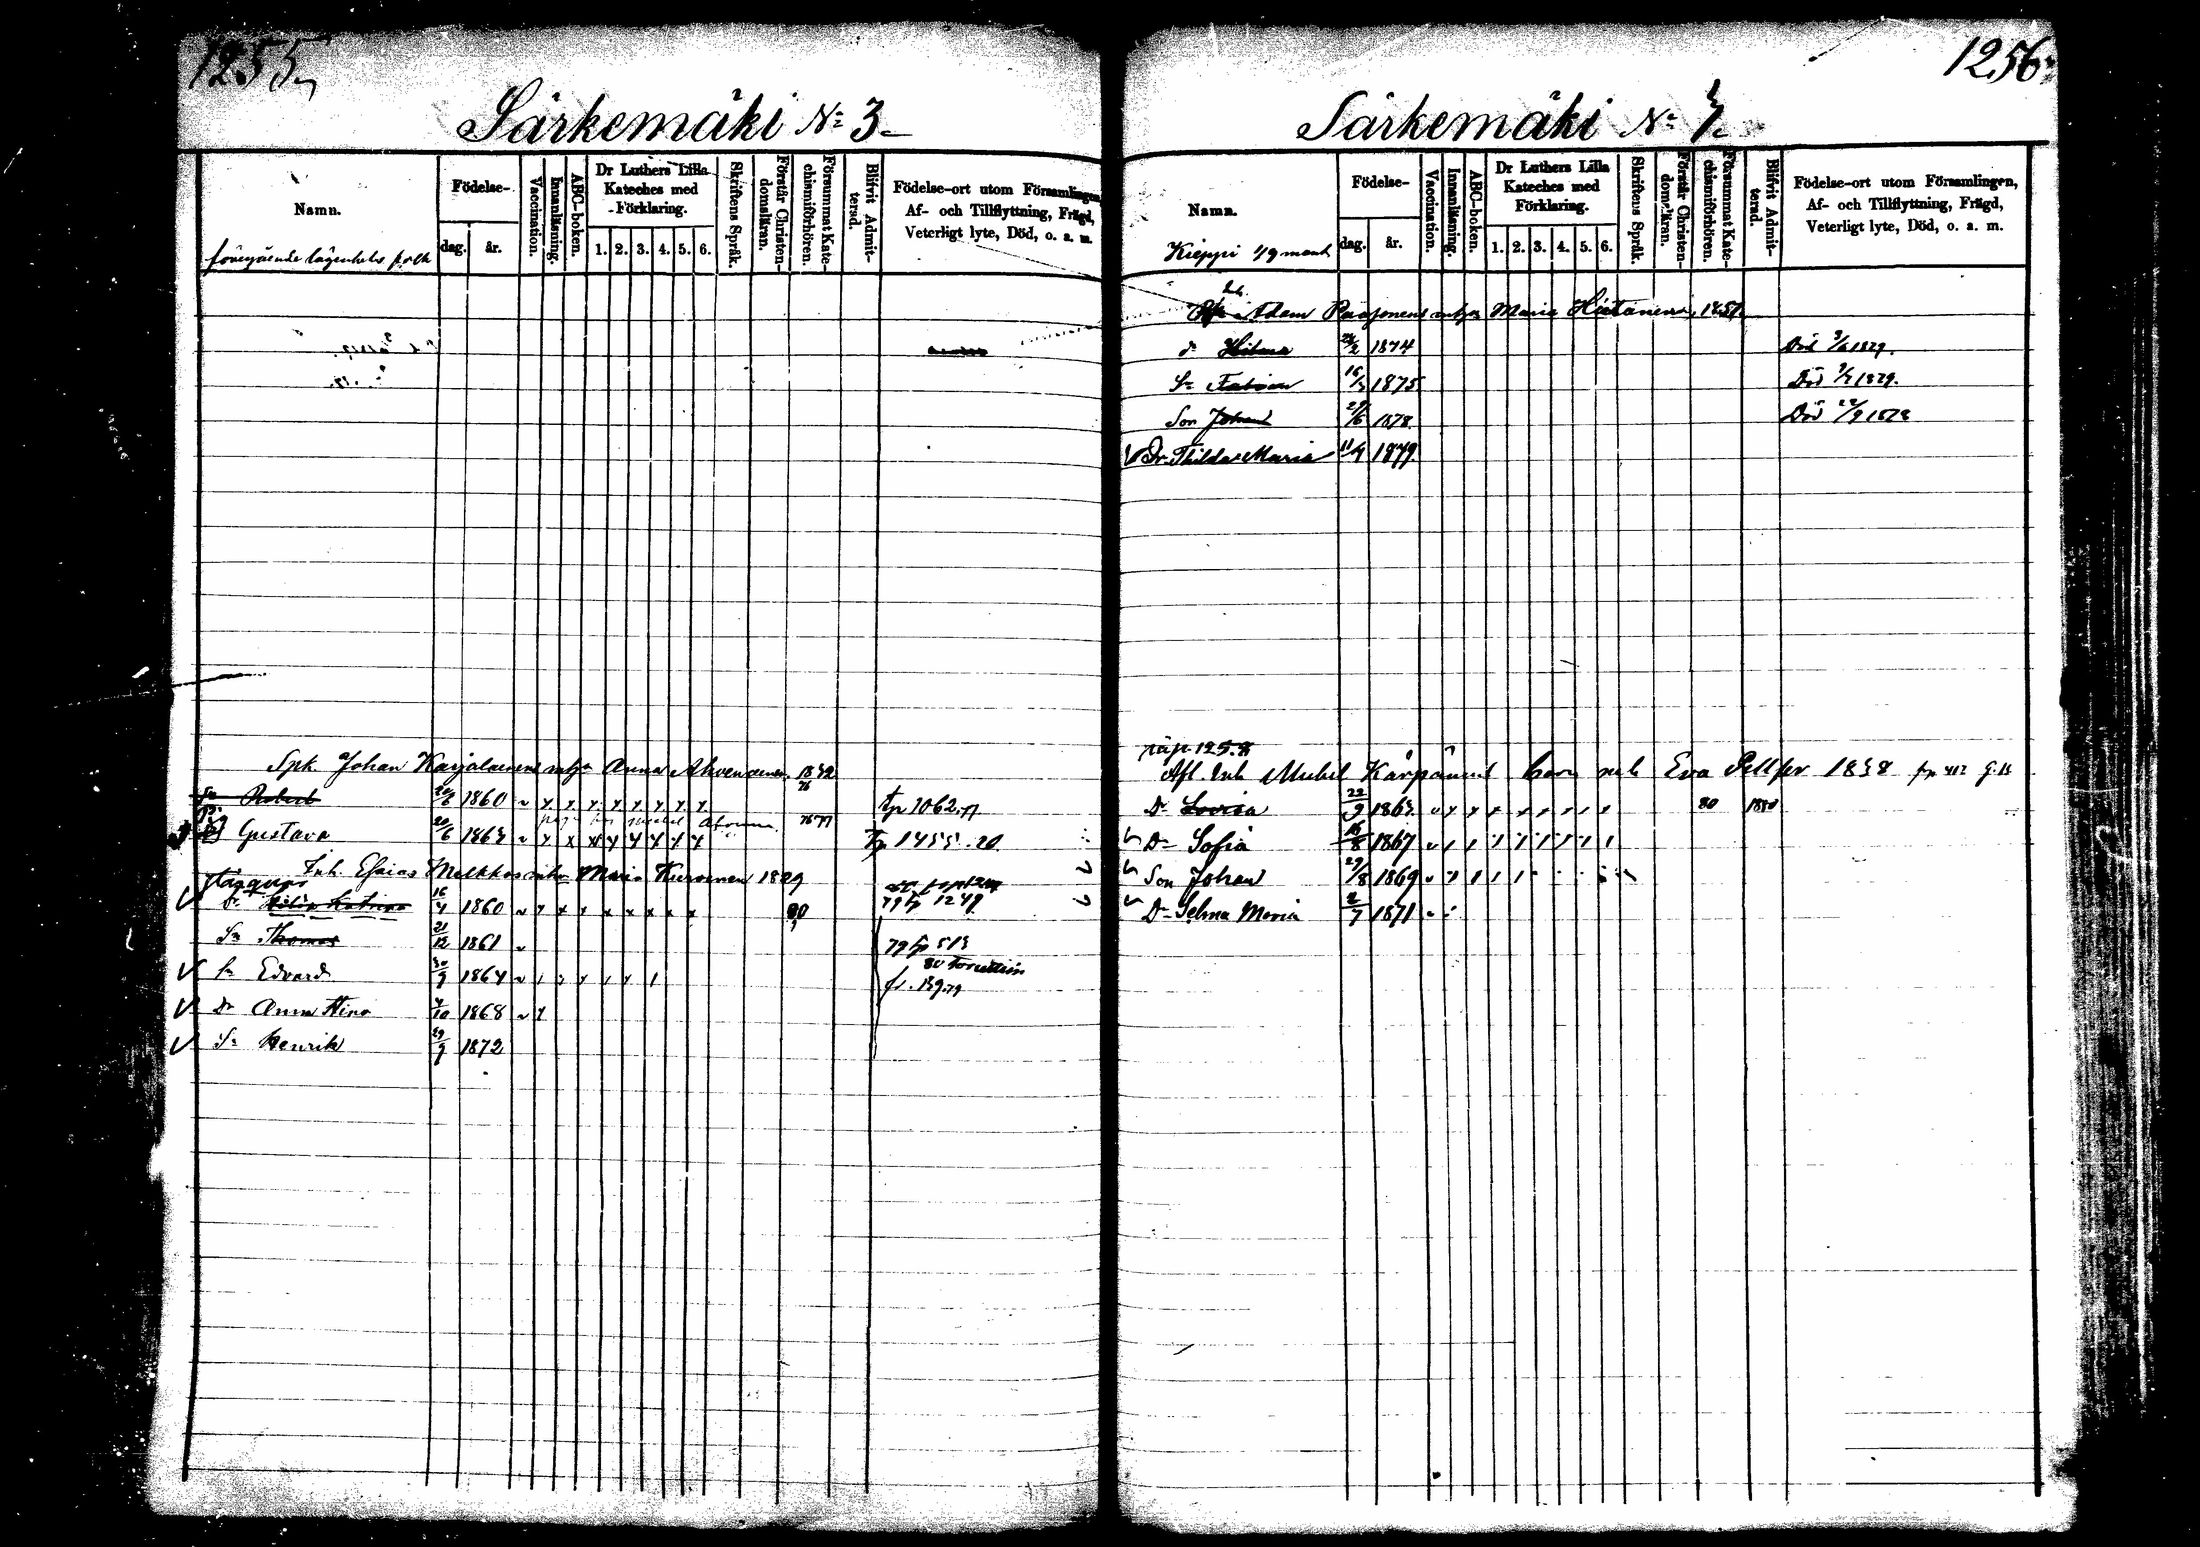 1255
Särkemäki No 3
Namn.
Födelse-
dag. år.
Vaccination.
Innanläsning.
ABC-boken.
Dr Luthers Lilla Kateches med Förklaring.
1. 2. 3. 4. 5. 6.
Skriftens Språk.
Förstår Christendomsläran.
Försummat Katechismiförhören.
Blifvit Admitterad.
Födelse-ort utom Församlingen,
Af- och Tillflyttning, Frägd,
Veterligt lyte, Död, o. a. m.
föregående lägenhets folk
Spk. Johan Karjalainens Anna Ahvenainen 1832
Sn Robert 20/6 1860 tp 1062.77
Gustava 20/6 1863 76 77 tp 1455.20
Inh. Esaias Melkko Maria Kurvinen 1829
Dr Katrina 16/4 1860 80 79 tp 1249
Sn Thomas 21/12 1861 79 tp 513
Sn Edvard 30/9 1864 fr. 139.79
Dr Anna Stina 4/10 1868
Sn Henrik 29/9 1872
1256
Särkemäki No 7
Namn.
Födelse-
dag. år.
Vaccination.
Innanläsning.
ABC-boken.
Dr Luthers Lilla Kateches med Förklaring.
1. 2. 3. 4. 5. 6.
Skriftens Språk.
Förstår Christendomsläran.
Försummat Katechismiförhören.
Blifvit Admitterad.
Födelse-ort utom Församlingen,
Af- och Tillflyttning, Frägd,
Veterligt lyte, Död, o. a. m.
Kieppi 1/9 mant
Inh. Adam Paasonens Maria Hietanen, 1851
d. Hilma 1874 Död 1879.
Sn Fabian 1875 Död 1879.
Son Johan 29/6 1878 Död 22/9 1878
Dr Thilda Maria 11/7 1879
pag 125.8
Afl. Inh Mickel Kärpänens barn Eva Pellper 1838 fr 412
Dr Lovisa 22/9 1863 80 1880
Dr Sofia 16/8 1867
Son Johan 29/8 1869
Dr Selma Maria 2/7 1871